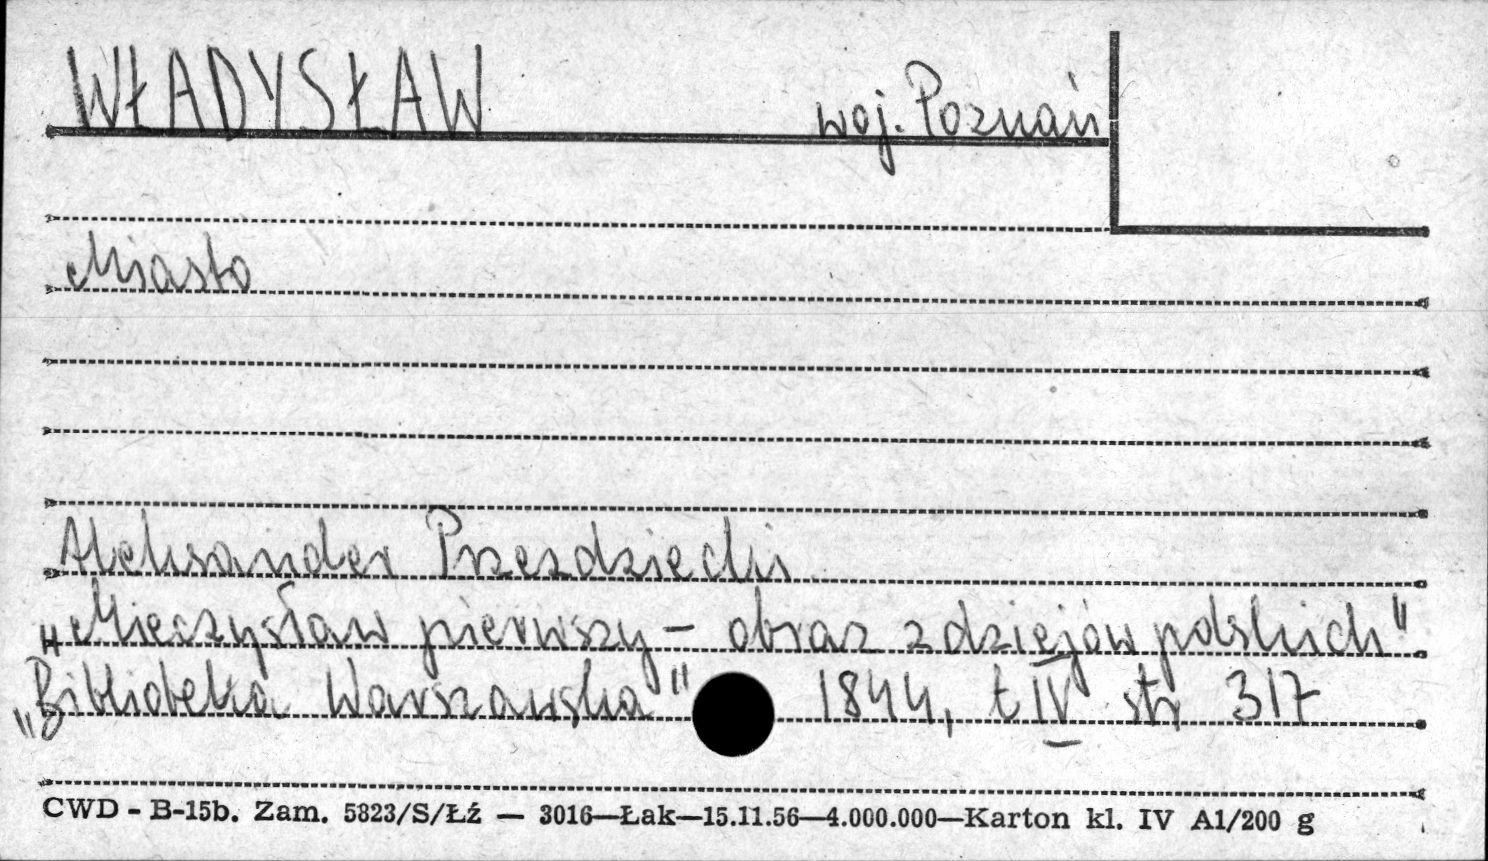 WŁADYSŁAW woj. Poznań
Miasto
Aleksander Przezdziecki
„Mieczysław pierwszy – obraz z dziejów polskich"
„Biblioteka Warszawska" 1844, t IV str 317
CWD - B-15b. Zam. 5823/S/Łź — 3016—Łak—15.11.56—4.000.000—Karton kl. IV A1/200 g